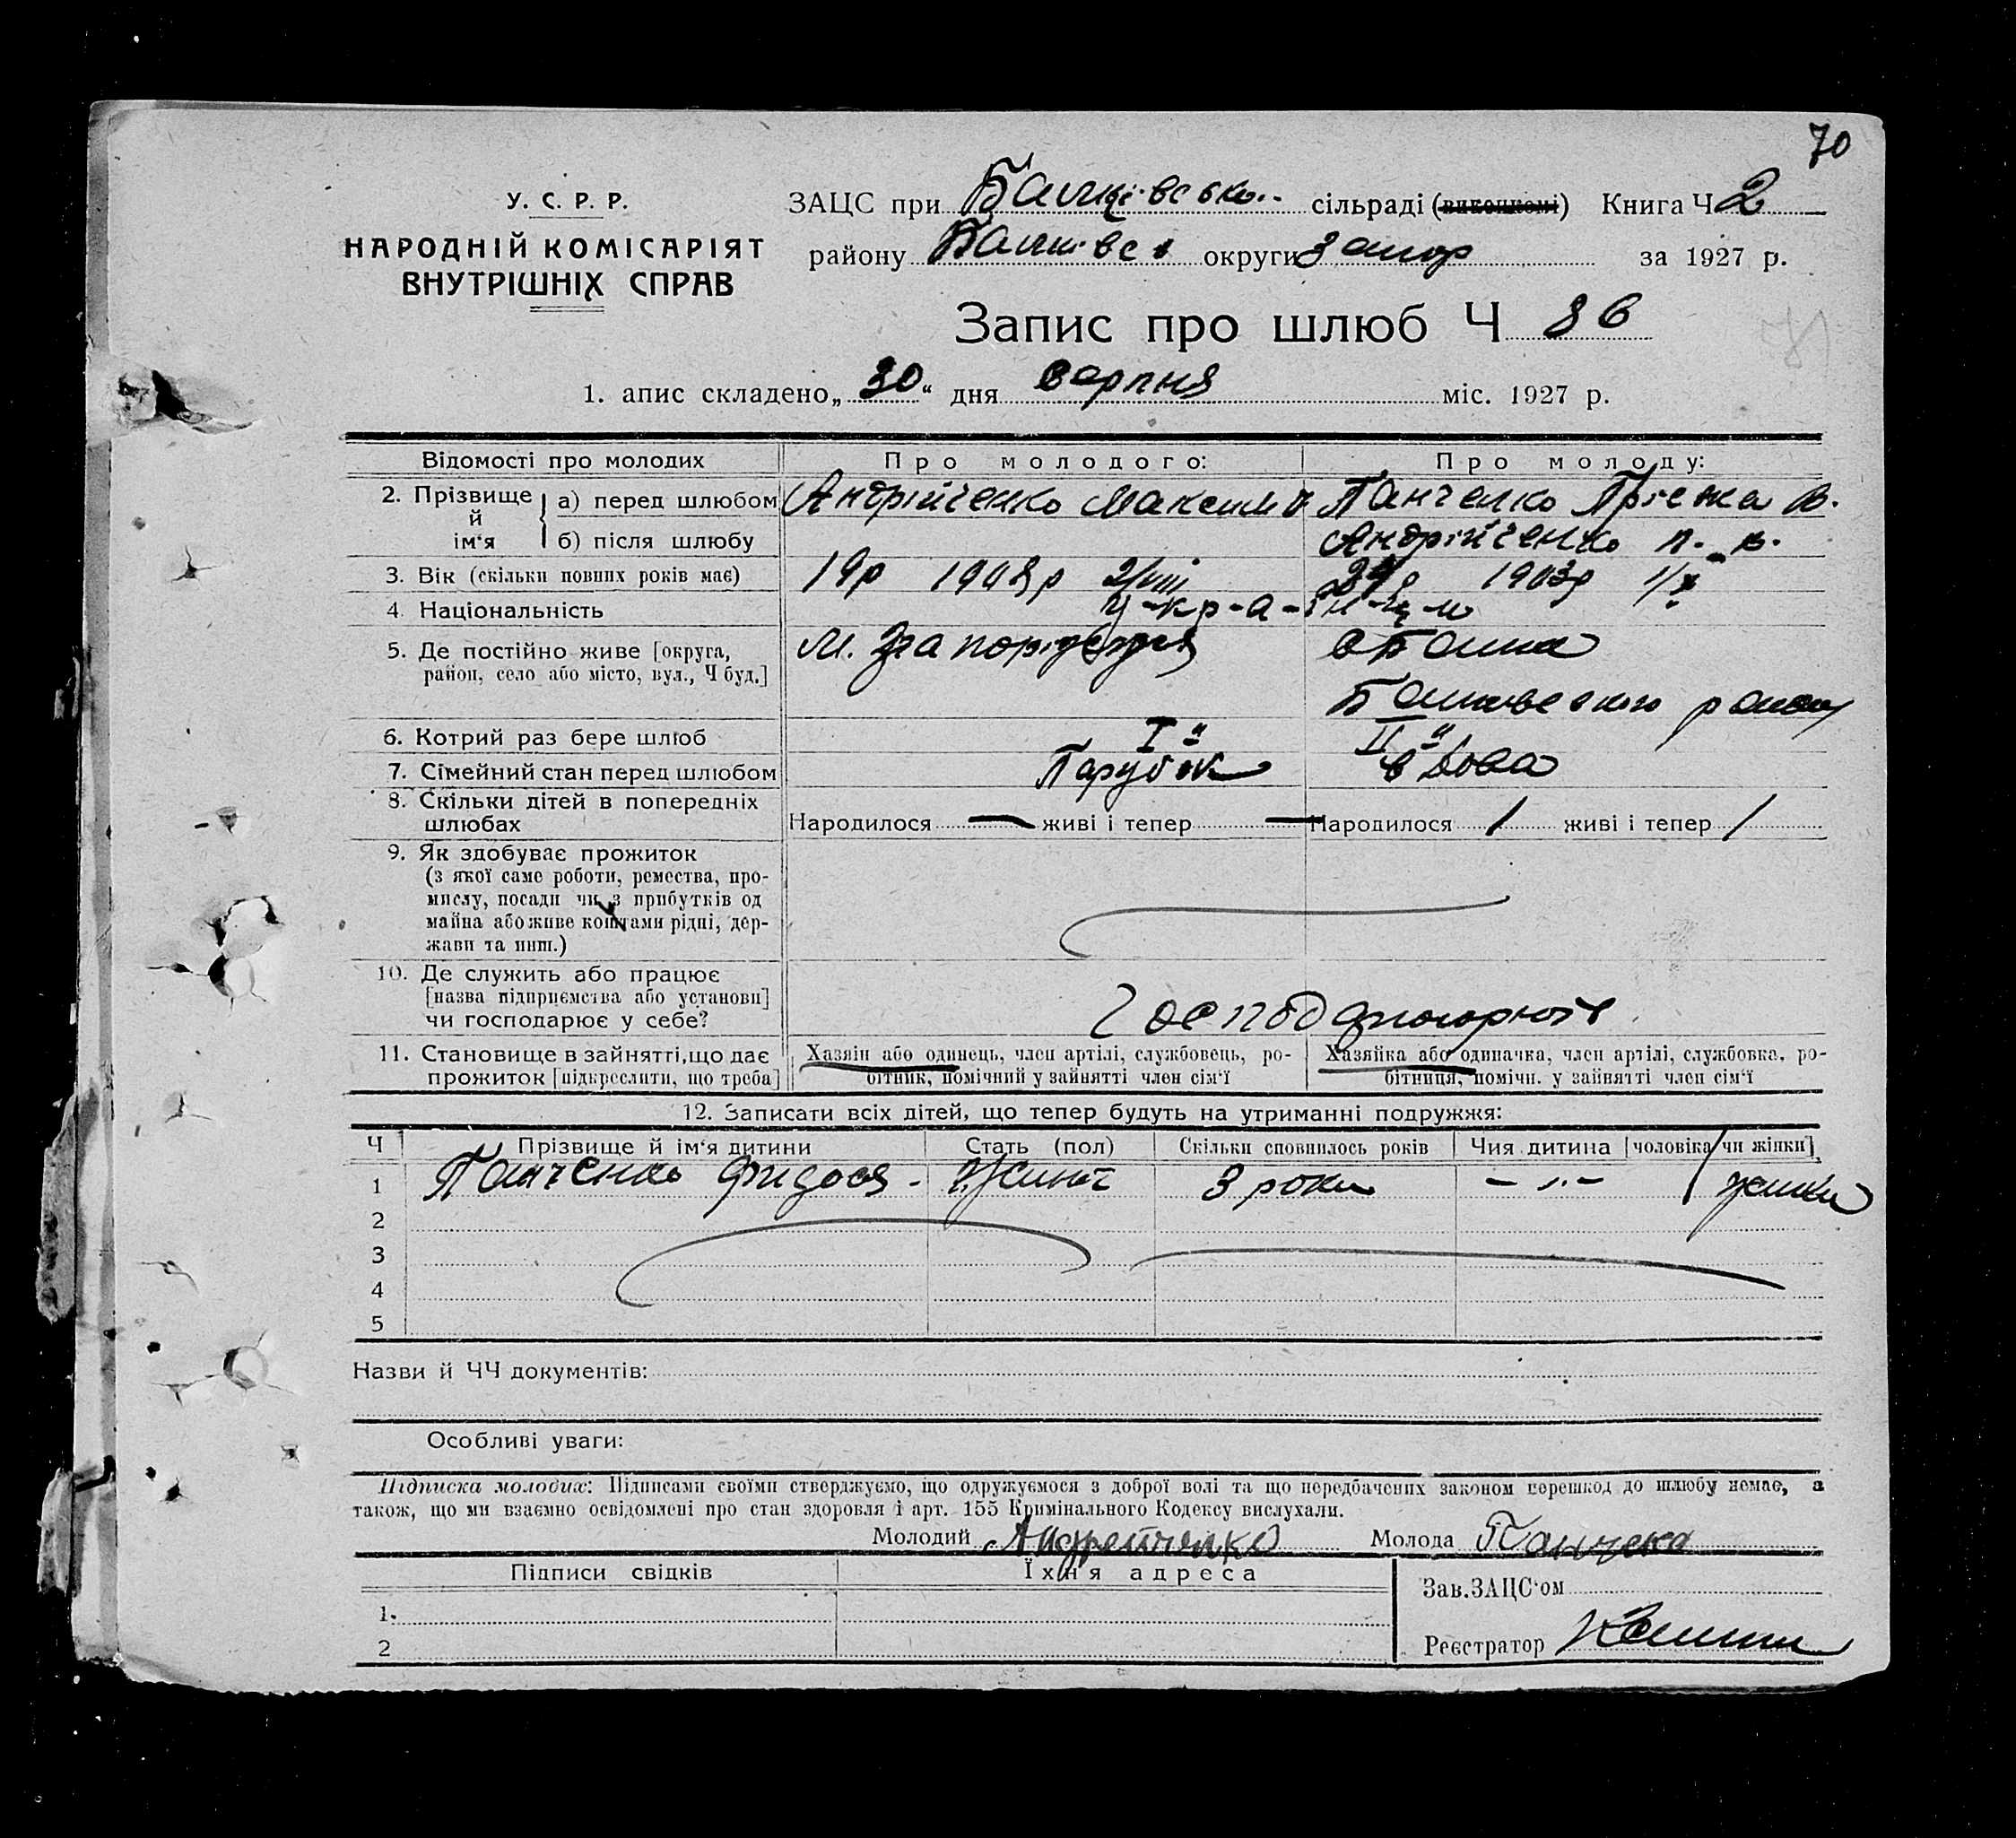 70
У. С. Р. Р.
НАРОДНІЙ КОМІСАРІЯТ
ВНУТРІШНІХ СПРАВ
ЗАЦС при сільраді (виконкомі) Книга Ч 2
району округи Запор за 1927 р.
Запис про шлюб Ч 86
1. апис складено „30“ дня серпня міс. 1927 р.
Відомості про молодих Про молодого: Про молоду:
2. Прізвище й ім'я а) перед шлюбом Андрійченко Максим Панченко В.
б) після шлюбу Андрійченко п. в.
3. Вік (скільки повних років має) 19р 1908р 2/VIII 1903р
4. Національність У-кр-а-їн-ц-и
5. Де постійно живе [округа, район, село або місто, вул., Ч буд.] М. Запоріжжя с Балки
району
6. Котрий раз бере шлюб I й II й
7. Сімейний стан перед шлюбом Парубок вдова
8. Скільки дітей в попередніх шлюбах Народилося — живі і тепер — Народилося 1 живі і тепер 1
9. Як здобуває прожиток
(з якої саме роботи, ремества, про-
мислу, посади чи з прибутків од
майна або живе коштами рідні, дер-
жави та инш.)
10. Де служить або працює
[назва підприємства або установи]
чи господарює у себе?
11. Становище в зайнятті, що дає прожиток [підкреслити, що треба]
Хазяїн або одинець, член артілі, службовець, ро-
бітник, помічний у зайнятті член сім'ї
Хазяйка або одиначка, член артілі, службовка, ро-
бітниця, помічн. у зайнятті член сім'ї
12. Записати всіх дітей, що тепер будуть на утриманні подружжя:
Ч Прізвище й ім'я дитини Стать (пол) Скільки сповнилось років Чия дитина [чоловіка чи жінки]
1 Панченко Фидося - 3 роки - „ - жинки
2
3
4
5
Назви й ЧЧ документів:
Особливі уваги:
Підписка молодих: Підписами своїми стверджуємо, що одружуємося з доброї волі та що передбачених законом перешкод до шлюбу немає, а
також, що ми взаємно освідомлені про стан здоровля і арт. 155 Кримінального Кодексу вислухали.
Молодий Андрейченко Молода Панчека
Підписи свідків Їхня адреса
Зав. ЗАЦС'ом
1.
Реєстратор
2